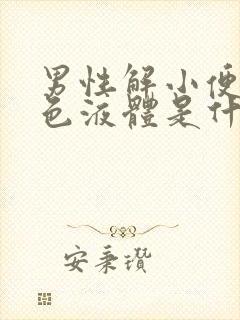 男性解小便
色液體是什
安秉瓚